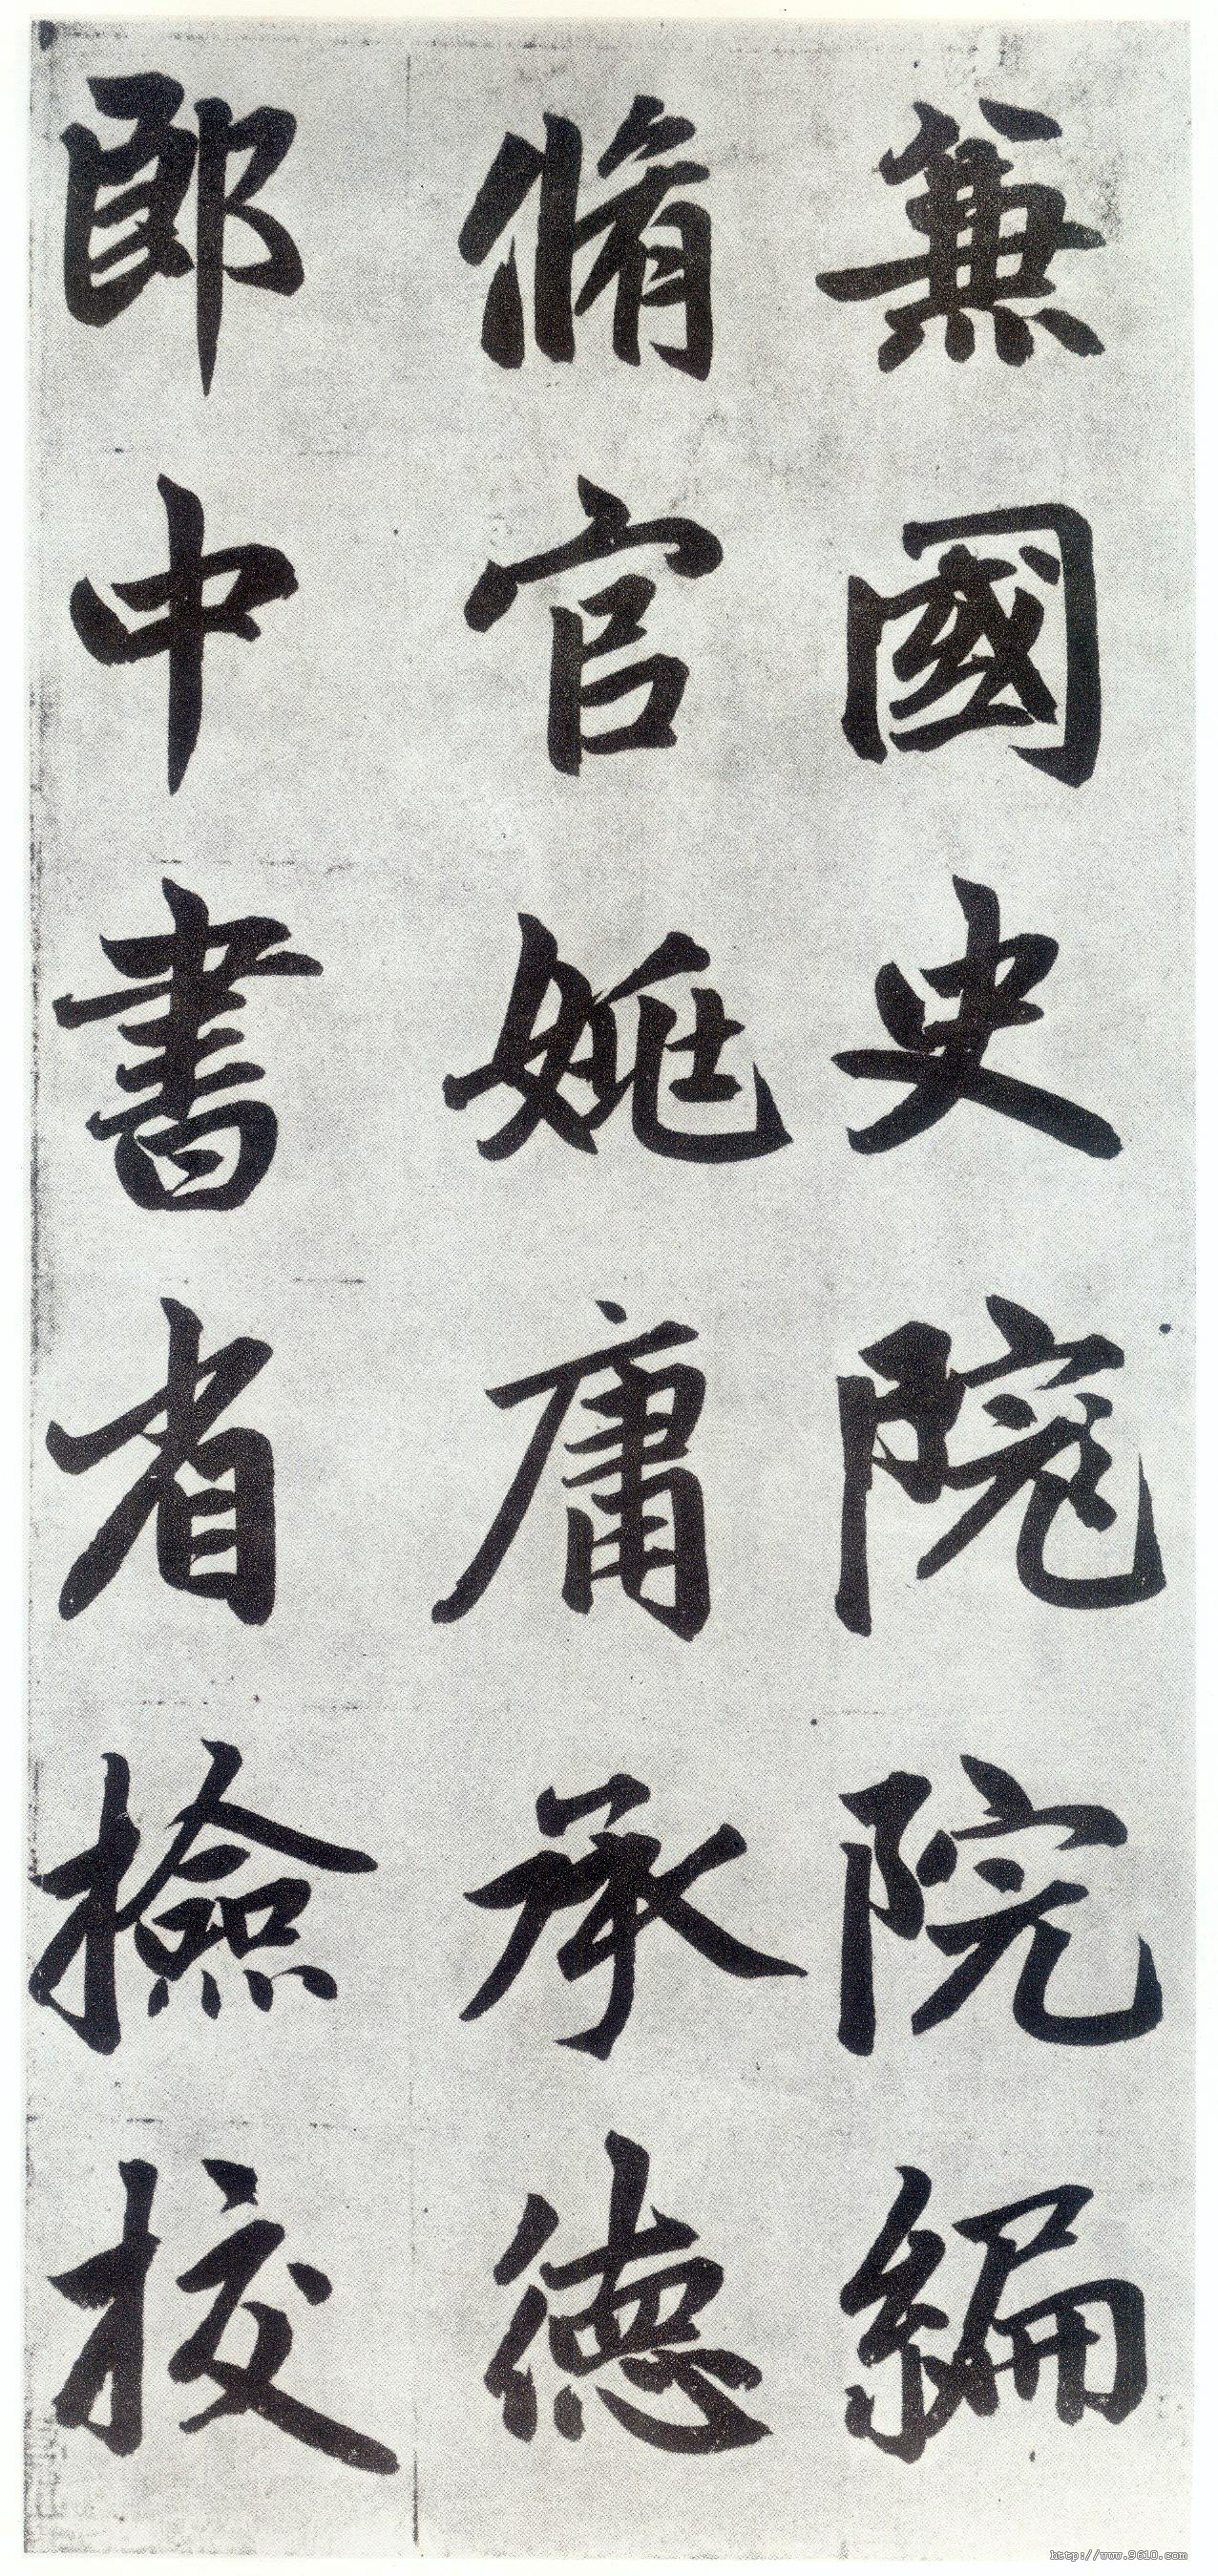 兼國史院院編
脩官姚庸承德
郎中書省撿挍
http://www.9610.com